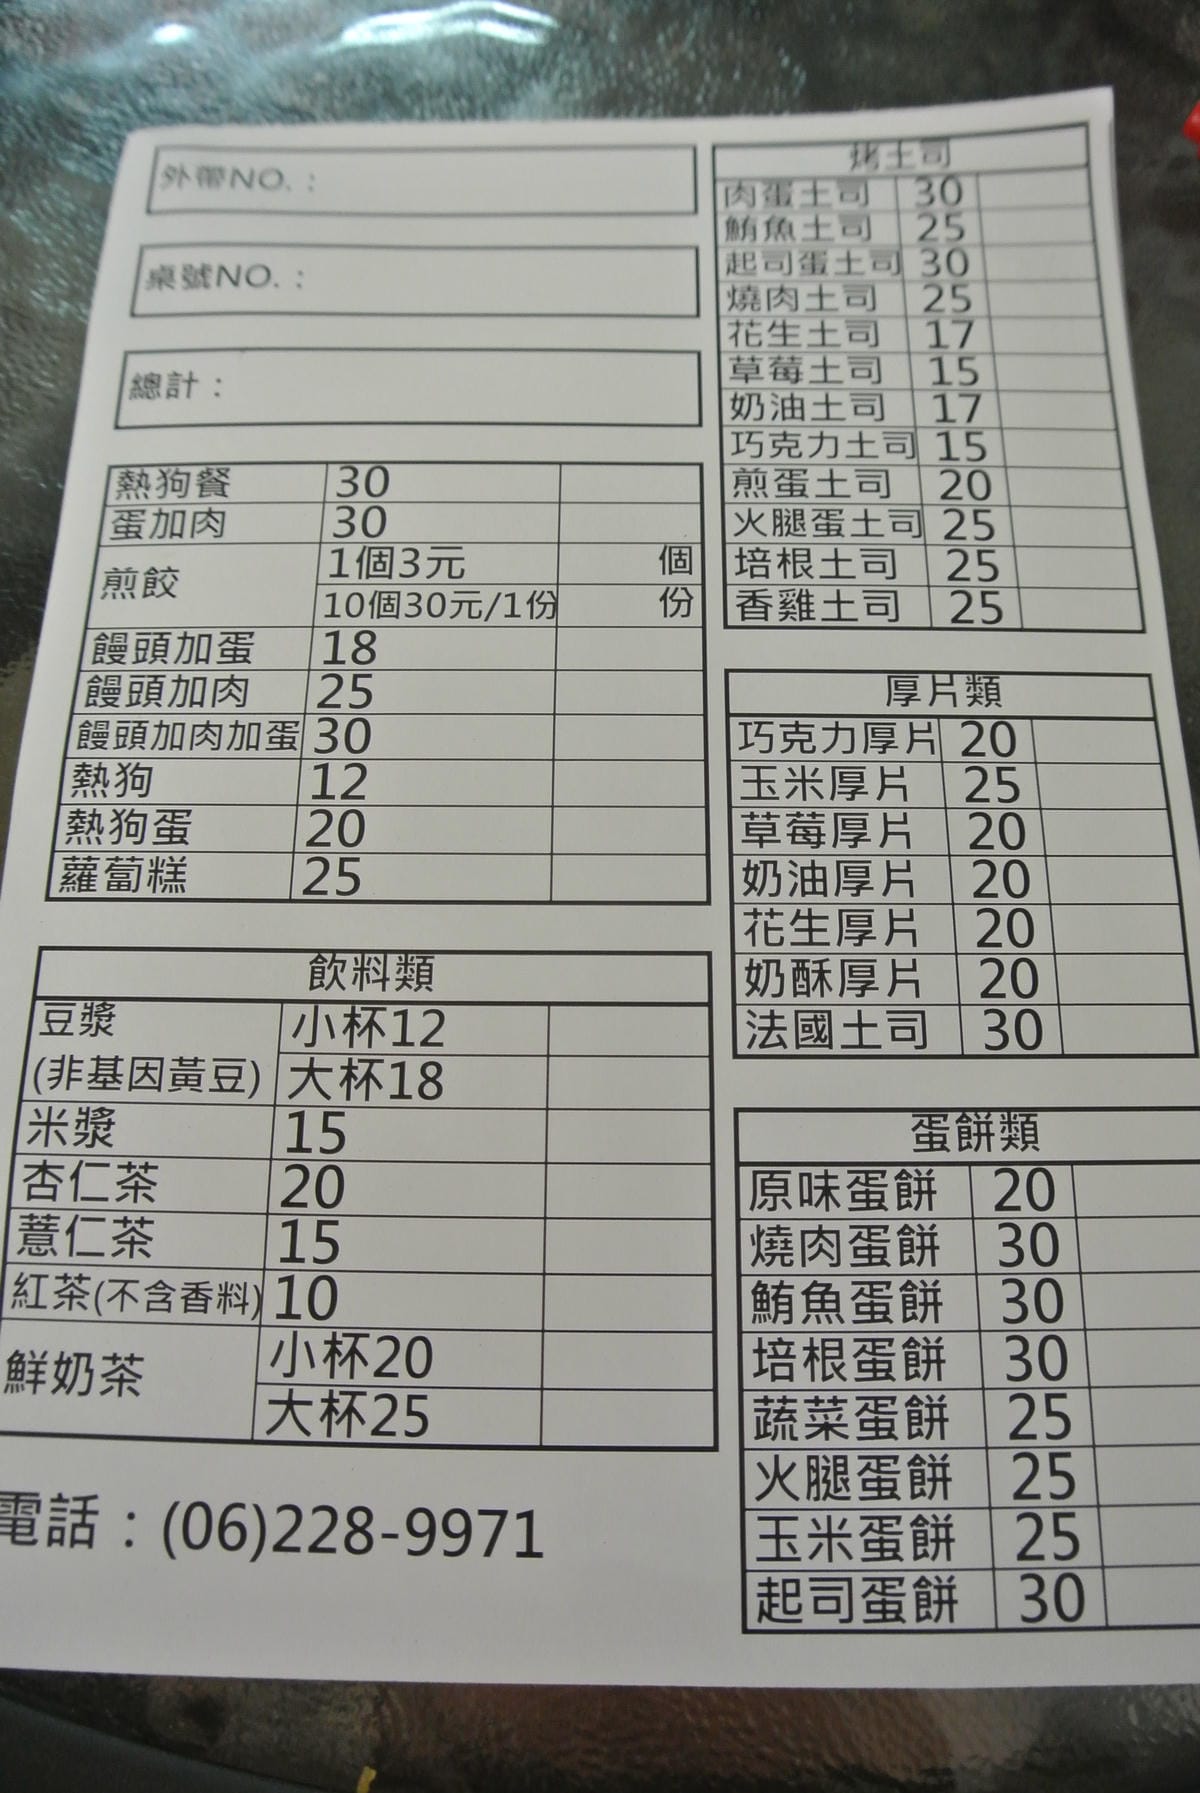 外帶NO.：
桌號NO.：
總計：
熱狗餐 30
蛋加肉 30
煎餃 1個3元 個
10個30元/1份 份
饅頭加蛋 18
饅頭加肉 25
饅頭加肉加蛋 30
熱狗 12
熱狗蛋 20
蘿蔔糕 25
飲料類
豆漿 小杯12
(非基因黃豆) 大杯18
米漿 15
杏仁茶 20
薏仁茶 15
紅茶(不含香料) 10
鮮奶茶 小杯20
大杯25
電話：(06)228-9971
烤土司
肉蛋土司 30
鮪魚土司 25
起司蛋土司 30
燒肉土司 25
花生土司 17
草莓土司 15
奶油土司 17
巧克力土司 15
煎蛋土司 20
火腿蛋土司 25
培根土司 25
香雞土司 25
厚片類
巧克力厚片 20
玉米厚片 25
草莓厚片 20
奶油厚片 20
花生厚片 20
奶酥厚片 20
法國土司 30
蛋餅類
原味蛋餅 20
燒肉蛋餅 30
鮪魚蛋餅 30
培根蛋餅 30
蔬菜蛋餅 25
火腿蛋餅 25
玉米蛋餅 25
起司蛋餅 30